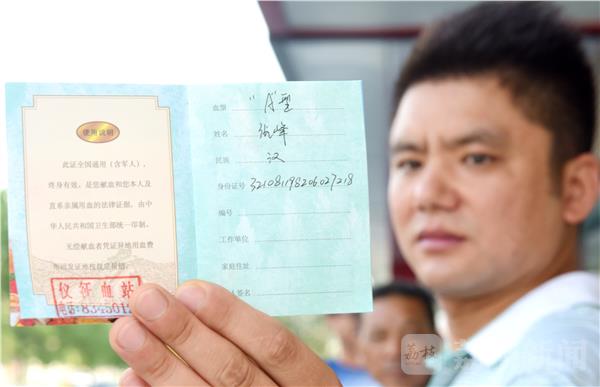 使用说明
此证全国通用（含军人），
终身有效，是您献血和您本人及
直系亲属用血的法律证据，由中
华人民共和国卫生部统一印制。
无偿献血者凭证异地用血费
仪征血站
血型 "A"型
姓名 张峰
民族 汉
身份证号 321081198206027218
编号
工作单位
家庭住址
人签名
荔枝
新闻